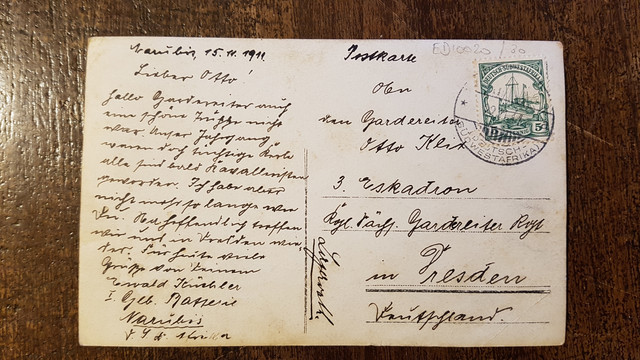 Narubis, 15.11.1911
Lieber Otto!
Hallo Gardereiter auch
eine schöne Truppe nicht
wahr. Unser Jahrgang
waren doch tüchtige Kerle
alle sind bald Kavalleristen
geworden. Ich habe aber
nicht mehr so lange wie
Du. Hoffentlich treffen
wir uns in Dresden wie-
der. Für heute viele
Grüße von Deinem
Ewald
I. Geb. Batterie
Narubis
Postkarte
ED10020
den Gardereiter
Otto
3. Eskadron
Kgl. Sächs. Gardereiter Regt
in Dresden
Deutschland.
DEUTSCH-SÜDWESTAFRIKA
5
DEUTSCH-
SÜDWESTAFRIKA